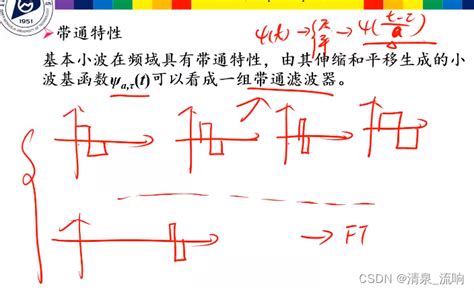 1951
➢ 带通特性
ψ(t) → → ψ(t-τ/a)
基本小波在频域具有带通特性，由其伸缩和平移生成的小
波基函数ψa,τ(t)可以看成一组带通滤波器。
→ FT
CSDN @清泉_流响